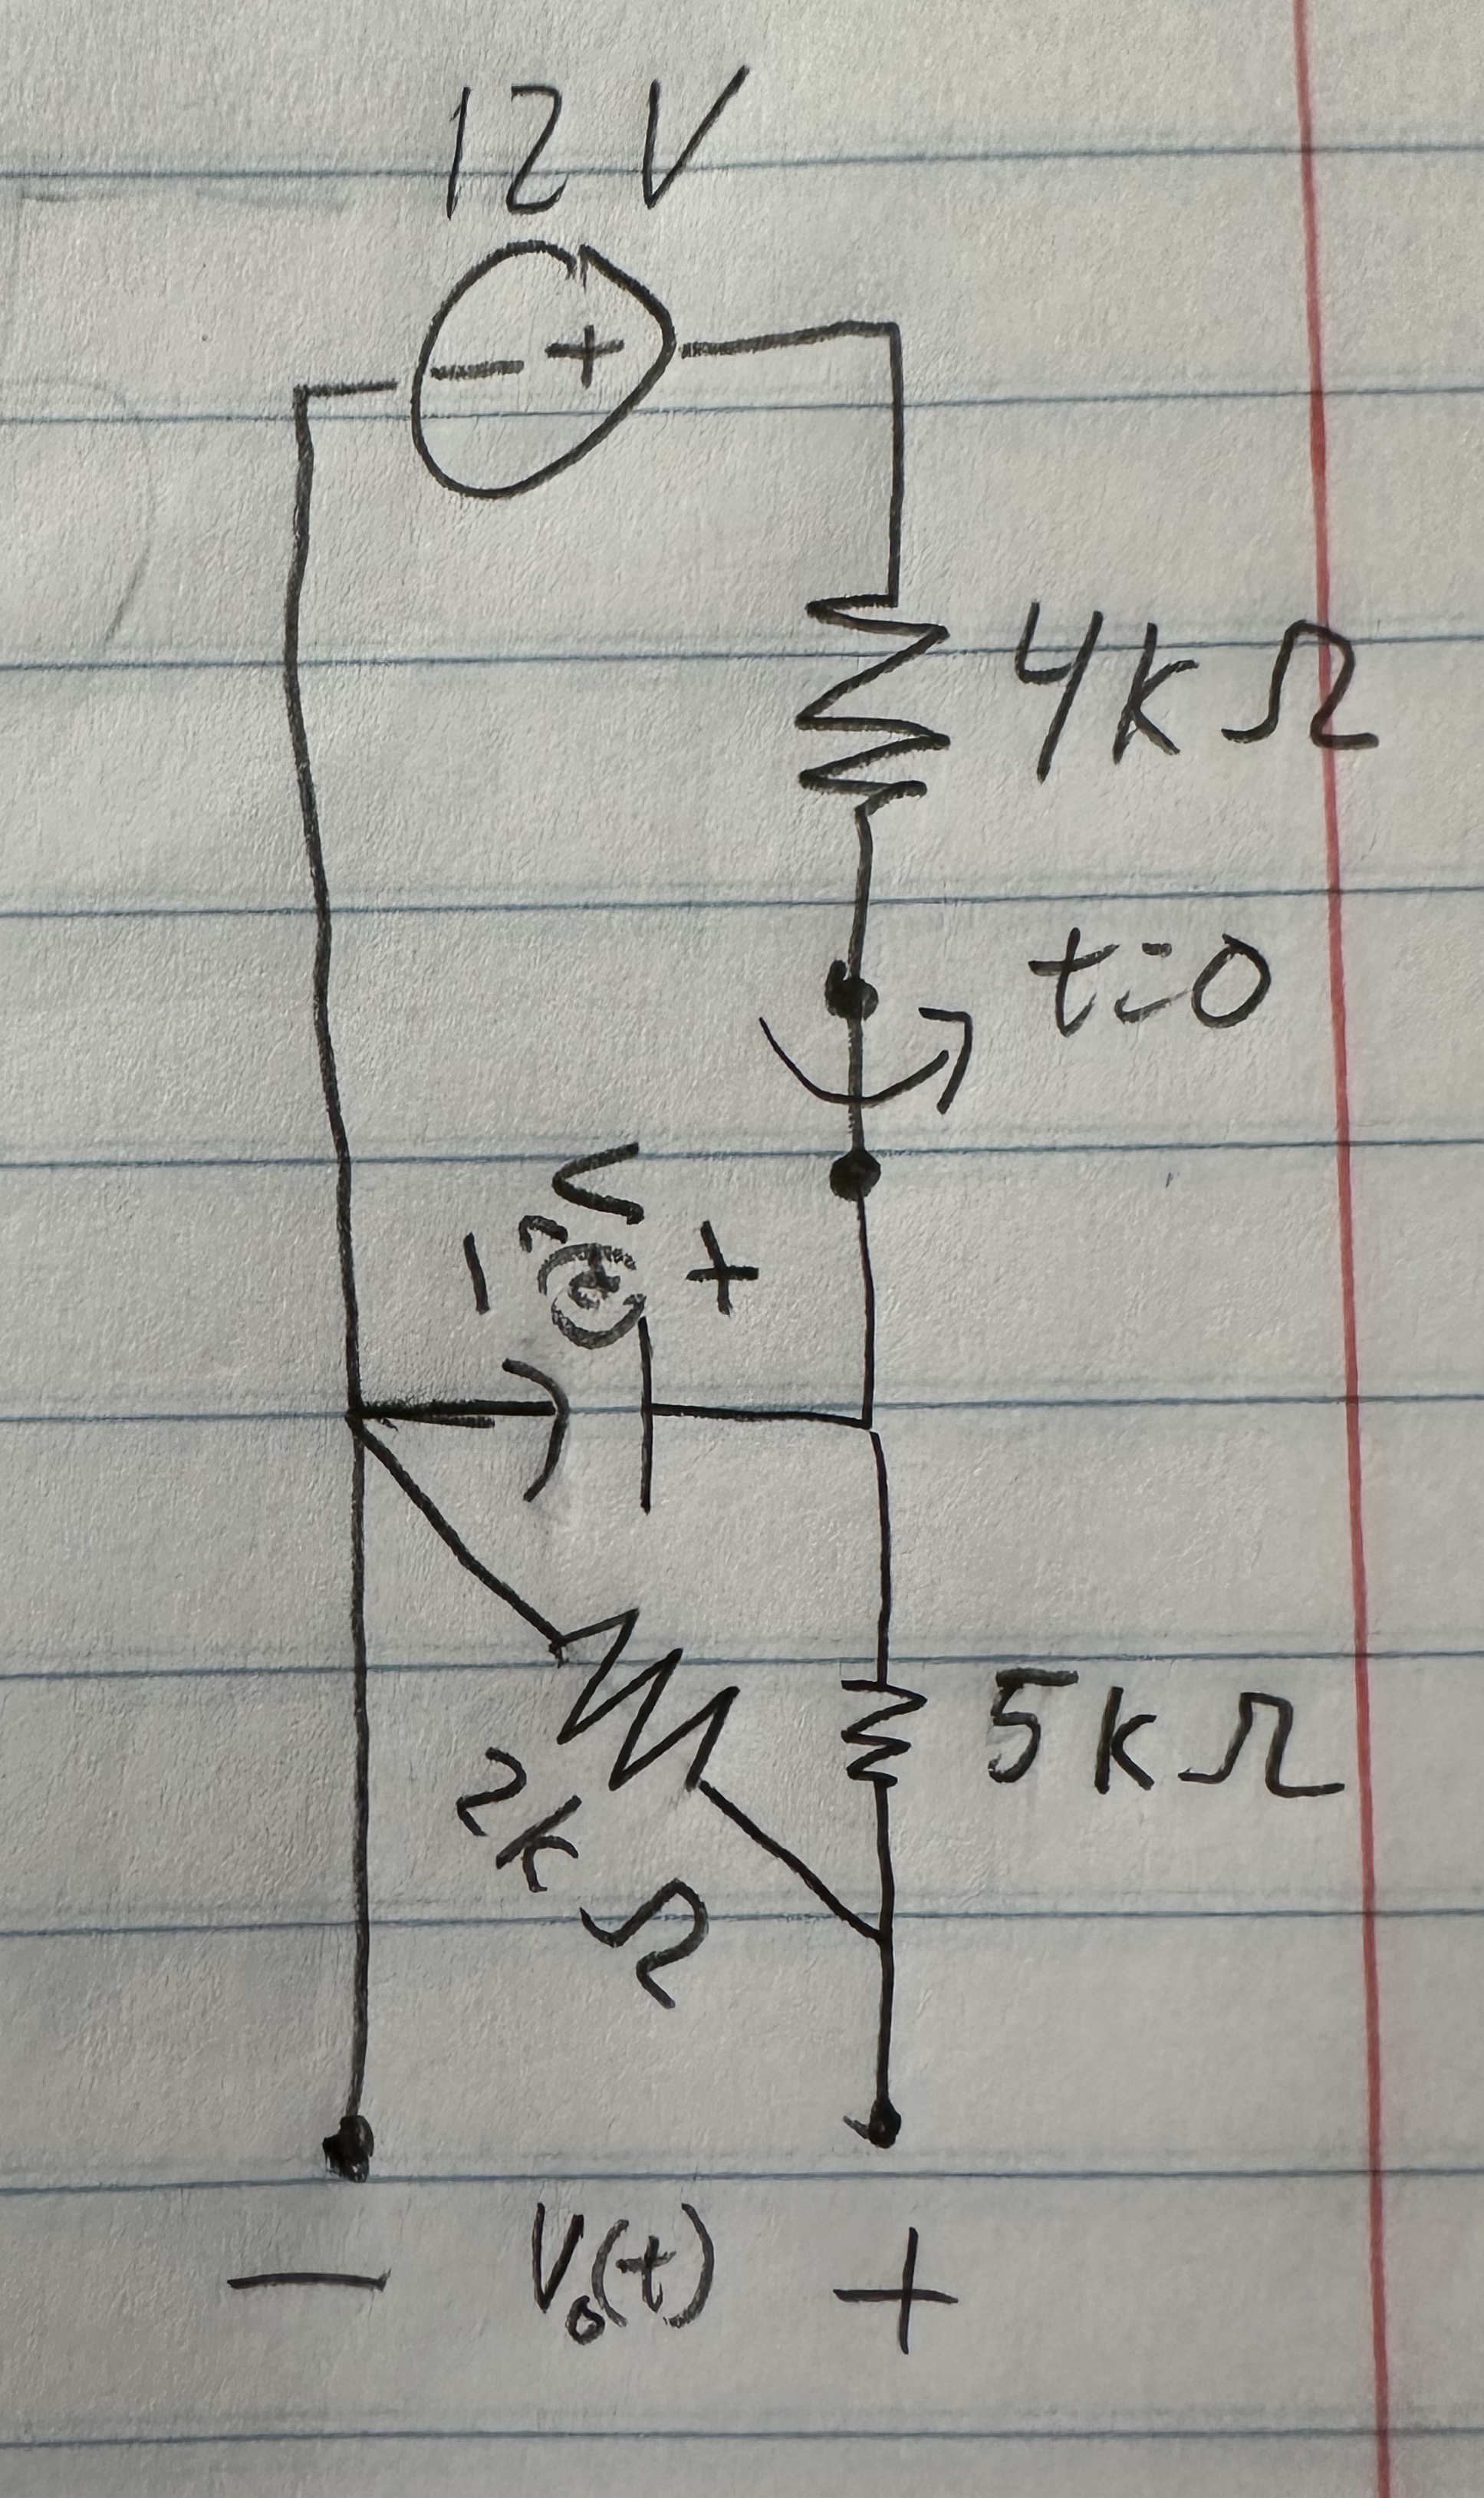 12 V
− +
4kΩ
t=0
+
5kΩ
2kΩ
− V₀(t) +